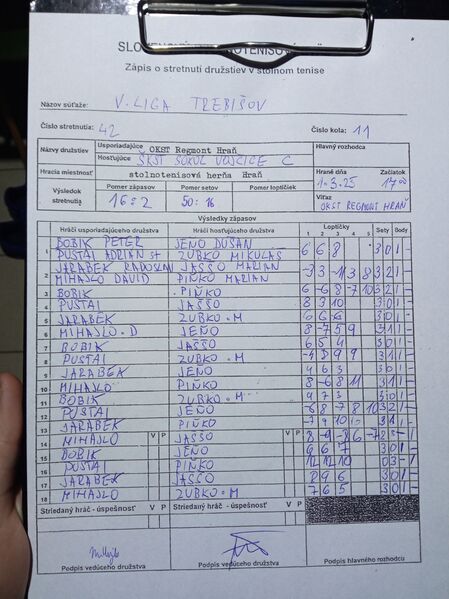 Zápis o stretnutí družstiev v stolnom tenise
Názov súťaže: V. LIGA TREBIŠOV
Číslo stretnutia: 42 Číslo kola: 11
Názvy družstiev Usporiadajúce OKST Regmont Hraň Hlavný rozhodca
Hosťujúce ŠKST SOKOL VOJČICE C
Hracia miestnosť stolnotenisová herňa Hraň Hrané dňa Začiatok
1.3.25 17 00
Výsledok stretnutia Pomer zápasov Pomer setov Pomer loptičiek Víťaz
16:2 50:16 OKST REGMONT HRAŇ
Výsledky zápasov
Hráči usporiadajúceho družstva Hráči hosťujúceho družstva Loptičky Sety Body
1 2 3 4 5
BOBIK PETER JENO DUŠAN
1 PUSTAI ADRIAN st ZUBKO MIKULÁŠ 6 6 8 3 0 1 -
JARABEK RADOSLAV JASSO MARIAN
2 MIHAJLO DAVID PIŇKO MARIAN 3 2 1 -
3 BOBIK PIŇKO 6 -6 8 -7 10 3 2 1 -
4 PUSTAI JASSO 8 3 10 3 0 1 -
5 JARABEK ZUBKO.M 6 6 6 3 0 1 -
6 MIHAJLO.D JENO 8 -7 5 9 3 1 1 -
7 BOBIK JASSO 6 5 4 3 0 1 -
8 PUSTAI ZUBKO.M 9 9 3 1 1 -
9 JARABEK JENO 4 6 3 3 0 1 -
10 MIHAJLO PIŇKO 8 -6 8 11 3 1 1 -
11 BOBIK ZUBKO.M 4 7 3 3 0 1 -
12 PUSTAI JENO -6 8 -7 8 10 3 2 1 -
13 JARABEK PIŇKO
14 MIHAJLO V P JASSO V P 8 -9 -8 6 -7
15 BOBIK JENO 6 6 7 3 0 1 -
16 PUSTAI PIŇKO 12 12 10 0 3 - 1
17 JARABEK JASSO 8 9 6 3 0 1 -
18 MIHAJLO ZUBKO.M 7 6 5 3 0 1 -
Striedaný hráč - úspešnosť V P Striedaný hráč - úspešnosť V P
Podpis vedúceho družstva Podpis vedúceho družstva Podpis hlavného rozhodcu